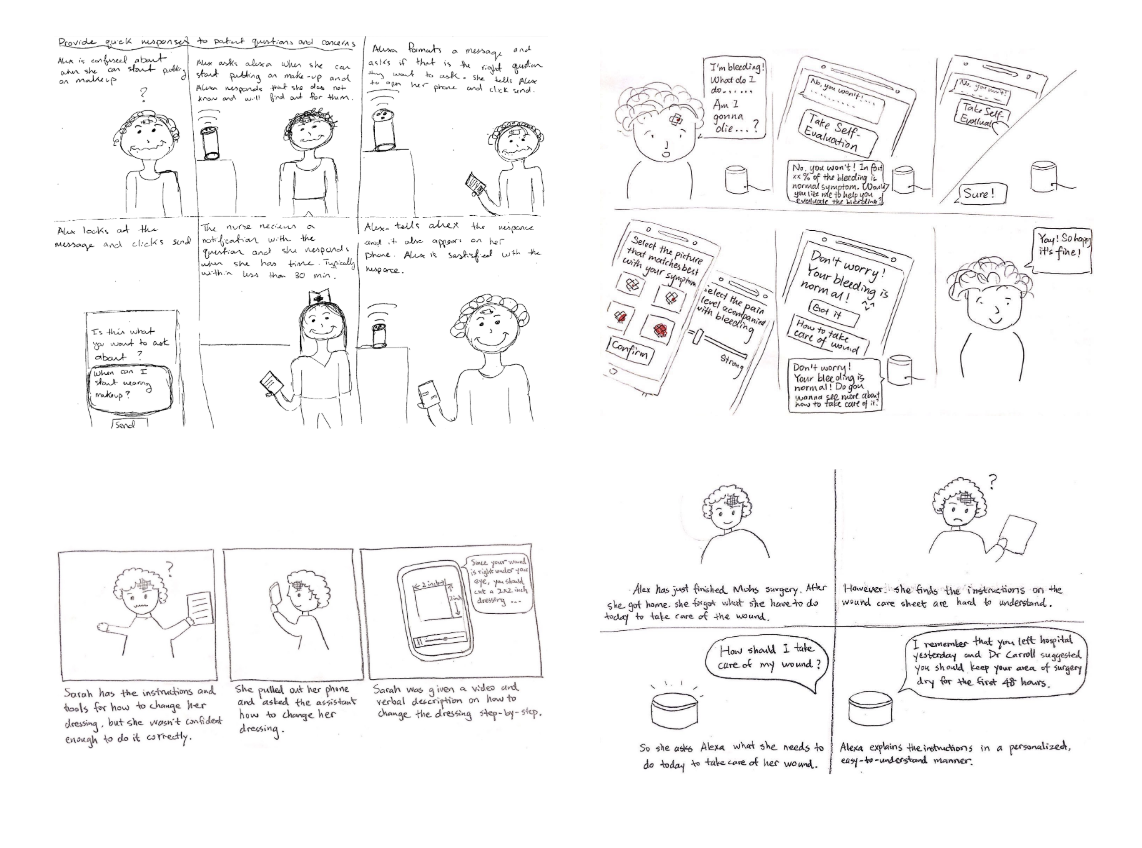 Provide quick responses to patient questions and concerns
Alex is confused about
when she can start putting
on makeup
?
Alex asks alexa when she can
start putting on make-up and
Alexa responds that she does not
know and will find out for them.
Alexa formats a message and
asks if that is the right question
they want to ask - she tells Alex
to open her phone and click send.
Alex looks at the
message and clicks send
Is this what
you want to ask
about ?
When can I
start wearing
makeup?
Send
The nurse recieves a
notification with the
question and she responds
when she has time. Typically
within less than 30 min.
Alexa tells alex the response
and it also appears on her
phone. Alex is satisfied with the
response.
I'm bleeding!
What do I
do......
Am I
gonna
die...?
No, you won't!...
Take Self-
Evaluation
No, you won't! In fact
xx% of the bleeding is
normal symptom. Would
you like me to help you
evaluate the bleeding?
No, you won't!
Take Self-
Evaluat
Sure!
Select the picture
that matches best
with your symptom
Confirm
Select the pain
level acompanied
with bleeding
Strong
Don't worry!
Your bleeding is
normal! ^^
Got it
How to take
care of wound
Don't worry!
Your bleeding is
normal! Do you
wanna see more about
how to take care of it?
Yay! So happy
it's fine!
?
Since your wound
is right under your
eye, you should
cut a 2x2 inch
dressing ...
Sarah has the instructions and
tools for how to change her
dressing, but she wasn't confident
enough to do it correctly.
She pulled out her phone
and asked the assistant
how to change her
dressing.
Sarah was given a video and
verbal description on how to
change the dressing step-by-step.
Alex has just finished Mohs surgery. After
she got home, she forgot what she have to do
today to take care of the wound.
?
However, she finds the instructions on the
wound care sheet are hard to understand.
How should I take
care of my wound?
So she asks Alexa what she needs to
do today to take care of her wound.
I remember that you left hospital
yesterday and Dr Carroll suggested
you should keep your area of surgery
dry for the first 48 hours.
Alexa explains the instructions in a personalized,
easy-to-understand manner.